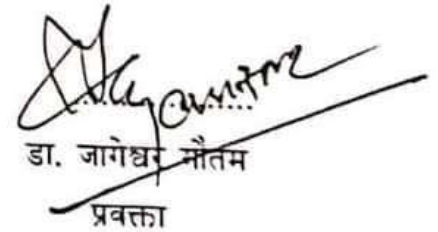 डा. जागेश्वर गौतम
प्रवक्ता